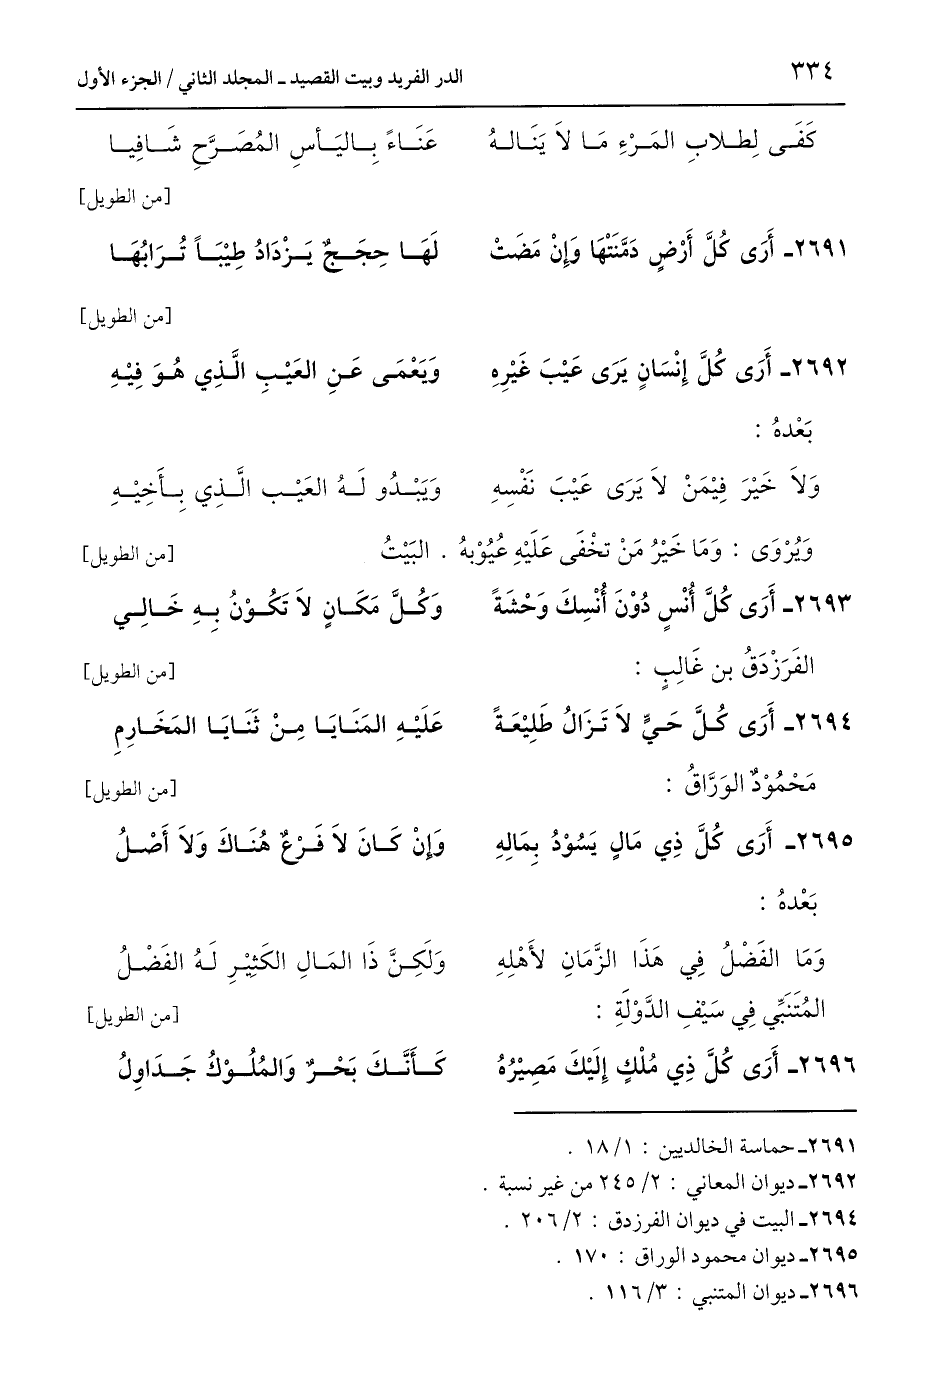 ٣٣٤ الدر الفريد وبيت القصيد ـ المجلد الثاني / الجزء الأول
كَفَـى لِطـلابِ المَـرْءِ مَـا لاَ يَنَالـهُ عَنَـاءً بِـاليَـأسِ المُصَـرَّحِ شَـافِيـا
[من الطويل]
٢٦٩١ـ أَرَى كُلَّ أَرْضٍ دَمَّنَتْهَا وَإِنْ مَضَتْ لَهَـا حِجَـجٌ يَـزْدَادُ طِيْبَـاً تُـرَابُهَـا
[من الطويل]
٢٦٩٢ـ أَرَى كُلَّ إِنْسَانٍ يَرَى عَيْبَ غَيْرِهِ وَيَعْمَـى عَـنِ العَيْـبِ الَّـذِي هُـوَ فِيْهِ
بَعْدهُ :
وَلاَ خَيْرَ فِيْمَنْ لاَ يَرَى عَيْبَ نَفْسِهِ وَيَبْـدُو لَـهُ العَيْـب الَّـذِي بِـأَخِيْـهِ
وَيُرْوَى : وَمَا خَيْرُ مَنْ تخْفَى عَلَيْهِ عُيُوْبهُ . البَيْتُ [من الطويل]
٢٦٩٣ـ أَرَى كُلَّ أُنْسٍ دُوْنَ أُنْسِكَ وَحْشَةً وَكُـلَّ مَكَـانٍ لاَ تَكُـوْنُ بِـهِ خَـالِـي
الفَرَزْدَقُ بن غَالِبٍ : [من الطويل]
٢٦٩٤ـ أَرَى كُـلَّ حَـيٍّ لاَ تَـزَالُ طَلِيْعَـةً عَلَيْـهِ المَنَـايَـا مِـنْ ثَنَـايَـا المَخَـارِمِ
مَحْمُوْدٌ الوَرَّاقُ : [من الطويل]
٢٦٩٥ـ أَرَى كُلَّ ذِي مَالٍ يَسُوْدُ بِمَالِهِ وَإِنْ كَـانَ لاَ فَـرْعٌ هُنَاكَ وَلاَ أَصْـلُ
بَعْدهُ :
وَمَا الفَضْلُ فِي هَذَا الزَّمَانِ لأَهْلِهِ وَلَكِـنَّ ذَا المَـالِ الكَثِيْـرِ لَـهُ الفَضْـلُ
المُتَنَبِّي فِي سَيْفِ الدَّوْلَةِ : [من الطويل]
٢٦٩٦ـ أَرَى كُلَّ ذِي مُلْكٍ إِلَيْكَ مَصِيْرُهُ كَـأَنَّـكَ بَحْـرٌ وَالمُلُـوْكُ جَـدَاوِلُ
٢٦٩١ـ حماسة الخالديين : ١/ ١٨ .
٢٦٩٢ـ ديوان المعاني : ٢/ ٢٤٥ من غير نسبة .
٢٦٩٤ـ البيت في ديوان الفرزدق : ٢/ ٢٠٦ .
٢٦٩٥ـ ديوان محمود الوراق : ١٧٠ .
٢٦٩٦ـ ديوان المتنبي : ٣/ ١١٦ .